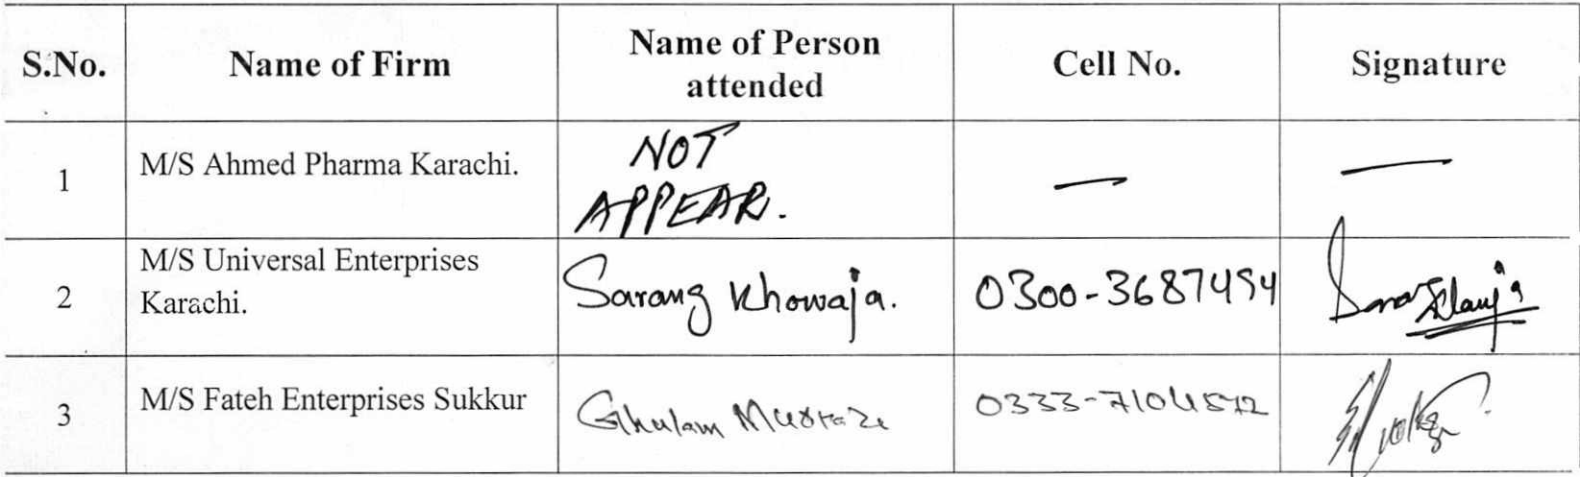 S.No. Name of Firm Name of Person attended Cell No. Signature
1 M/S Ahmed Pharma Karachi. NOT APPEAR. — —
2 M/S Universal Enterprises Karachi. Sarang Khowaja. 0300-3687494
3 M/S Fateh Enterprises Sukkur Ghulam